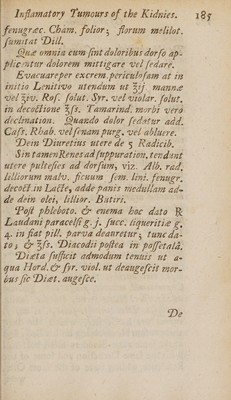 Inflamatory Tumours of the Kidnies. 185
fenugræc. Cham. folior; florum melilot.
sumitat Dill.
Quæ omnia cum sint doloribus dorso ap-
plicentur dolorem mittigare vel sedare.
Evacuare per excrem. periculosam at in
initio Lenitivo utendum ut ʒij mannæ
vel ℥iv. Ros. solut. Syr. vel violar. solut.
in decoctione ℥ss. Tamarind. morbi vero
declination. Quando dolor sedatur add.
Cass. Rhab. vel senam purg. vel abluere.
Dein Diuretius utere de 5 Radicib.
Sin tamen Renes ad suppuration. tendunt
utere pultesies ad dorsum, viz. Alb. rad.
lilliorum malv. ficuum sem. lini. fenugr.
decoct. in Lacte, adde panis medullam ad-
de dein olei, lillior. Butiri.
Post phleboto. & enema hoc dato ℞
Laudani paracelsi g. j. succ. liqueritiæ g.
4. in fiat pill. parva deauretur; tunc da-
to; & ℥ss. Diacodii postea in possetalâ.
Diæta sufficit admodum tenuis ut a-
qua Hord. & syr. viol. ut deaugescit mor-
bus sic Diæt. augesce.
De